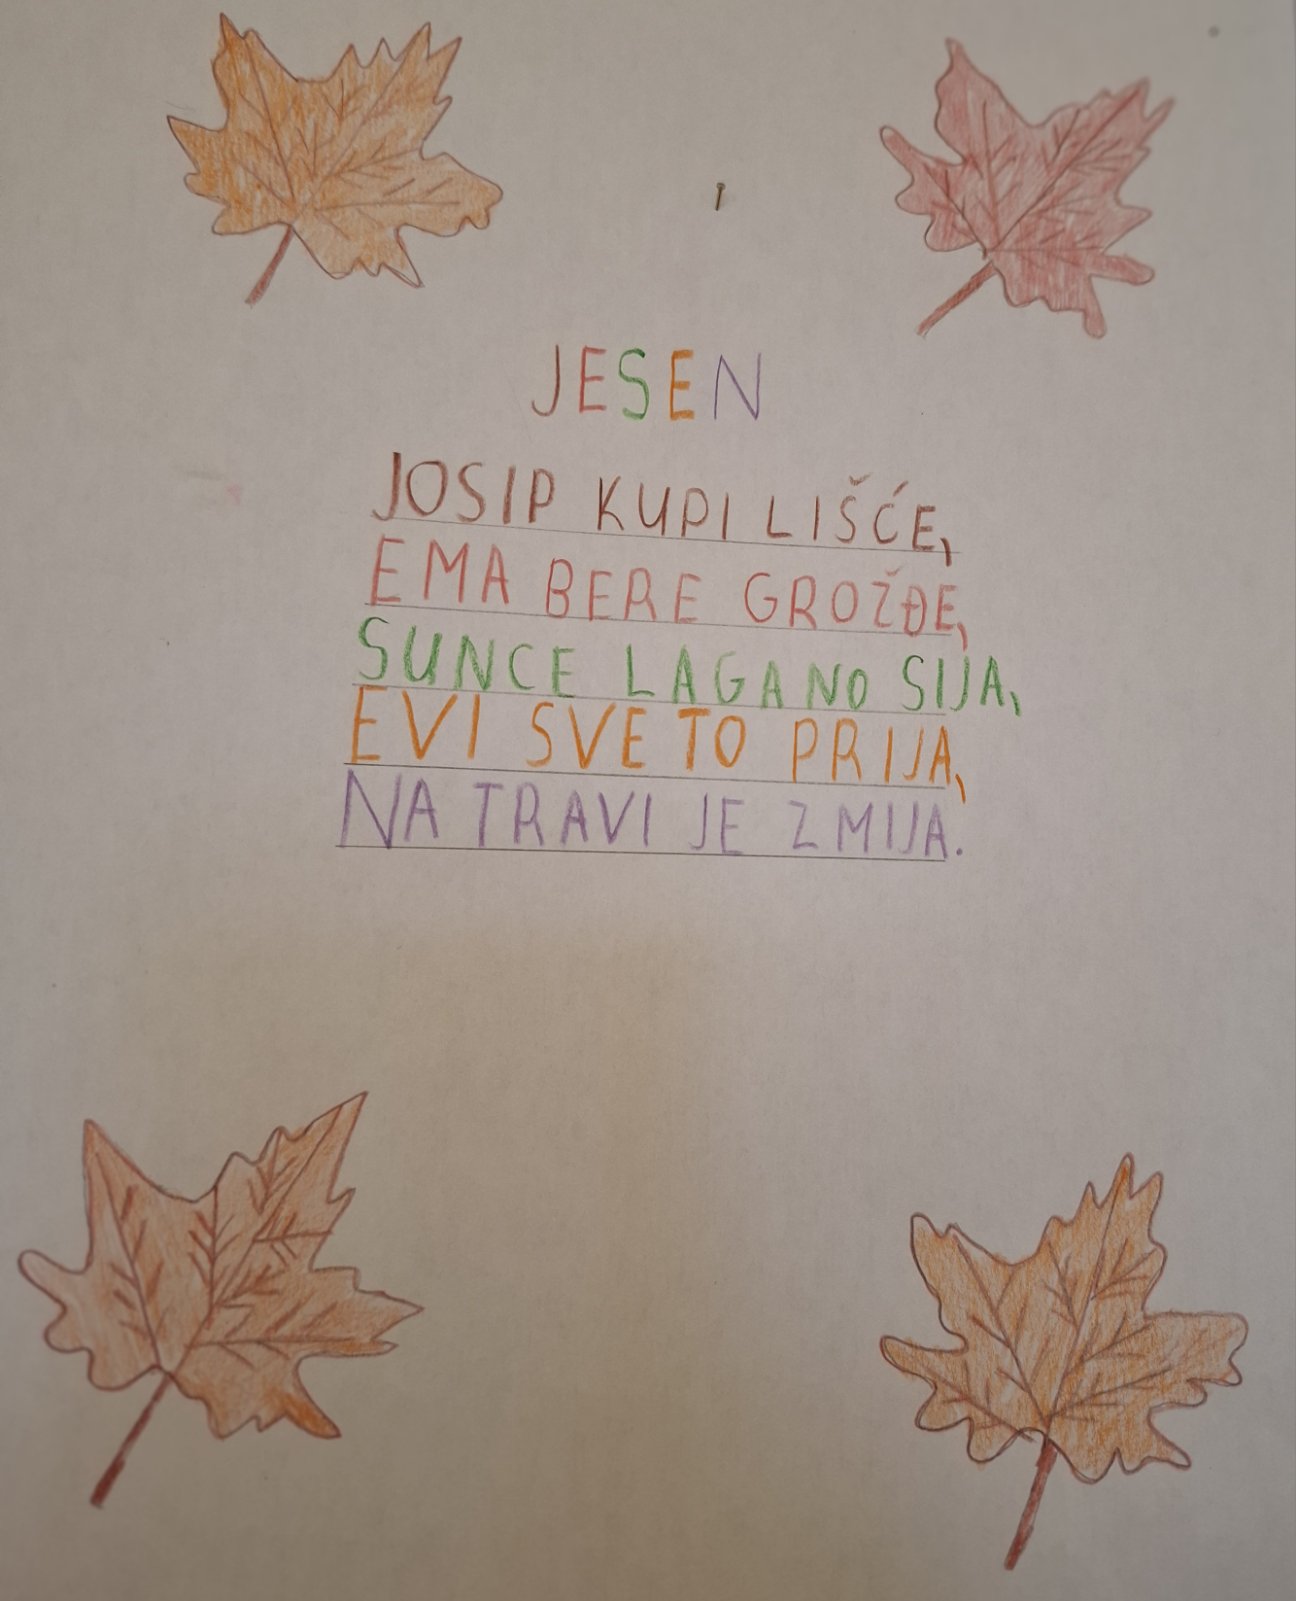 JESEN
JOSIP KUPI LIŠĆE,
EMA BERE GROŽĐE,
SUNCE LAGANO SIJA,
EVI SVE TO PRIJA,
NA TRAVI JE ZMIJA.